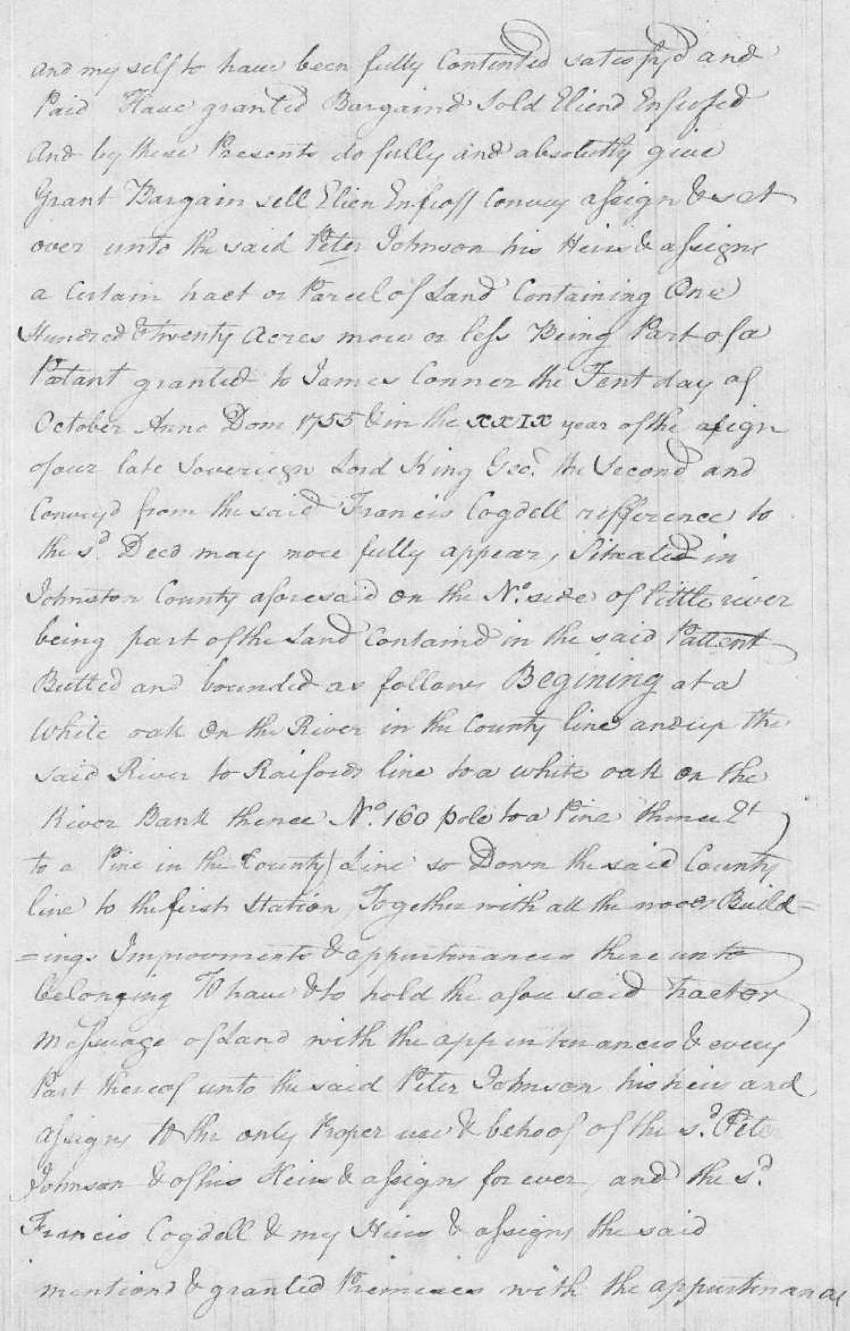 and my self to have been fully Contented satisfy'd and
Paid Have granted Bargaind Sold Eliend Enfeofed
And by these Presents do fully and absolutly give
Grant Bargain sell Elien Enfeoff Convey assign & set
over unto the said Peter Johnson his Heirs & assigns
a Certain tract or Parcel of Land Containing One
Hundred & twenty Acres more or less Being Part of a
Patant granted to James Conner the Tent day of
October Anno Dom 1755 & in the XXIX year of the
of our late Sovereign Lord King Geo. the Second and
Convey'd from the said Francis Cogdell refference to
the sd. Deed may more fully appear, Situated in
Johnston County aforesaid on the No. side of little river
being part of the Land Containd in the said Pattent
Butted and bounded as follows Begining at a
White oak on the River in the County line and up the
said River to Raifords line to a white oak on the
River Bank thence No. 160 pole to a Pine thence
to a Pine in the County Line so Down the said County
line to the first Station, Together with all the woods Build=
=ings Improvments & appurtenances there unto
belonging To have & to hold the afore said tract or
Messuage of Land with the appurtenances & every
Part thereof unto the said Peter Johnson his heirs and
assigns to the only Proper use & behoof of the sd. Peter
Johnson & of his Heirs & assigns for ever, and the sd.
Francis Cogdell & my Heirs & assigns the said
mentiond & granted Premises with the appurtenances